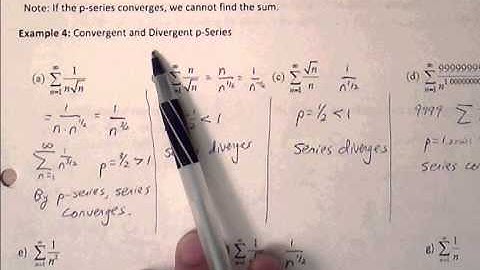 Note: If the p-series converges, we cannot find the sum.
Example 4: Convergent and Divergent p-Series
(a) ∑_{n=1}^{∞} 1/(n√n)
= 1/(n·n^{1/2}) = 1/n^{3/2}
∑_{n=1}^{∞} 1/n^{3/2} p = 3/2 > 1
By p-series, series
converges.
∑ n/√n = n/n^{1/2} =
1/2 < 1
diverges
(c) ∑_{n=1}^{∞} √n/n 1/n^{1/2}
p = 1/2 < 1
Series diverges
(d) ∑_{n=1}^{∞}
9999 ∑
Series
e) ∑_{n=1}^{∞} 1/n²
g) ∑_{n=1}^{∞} 1/n